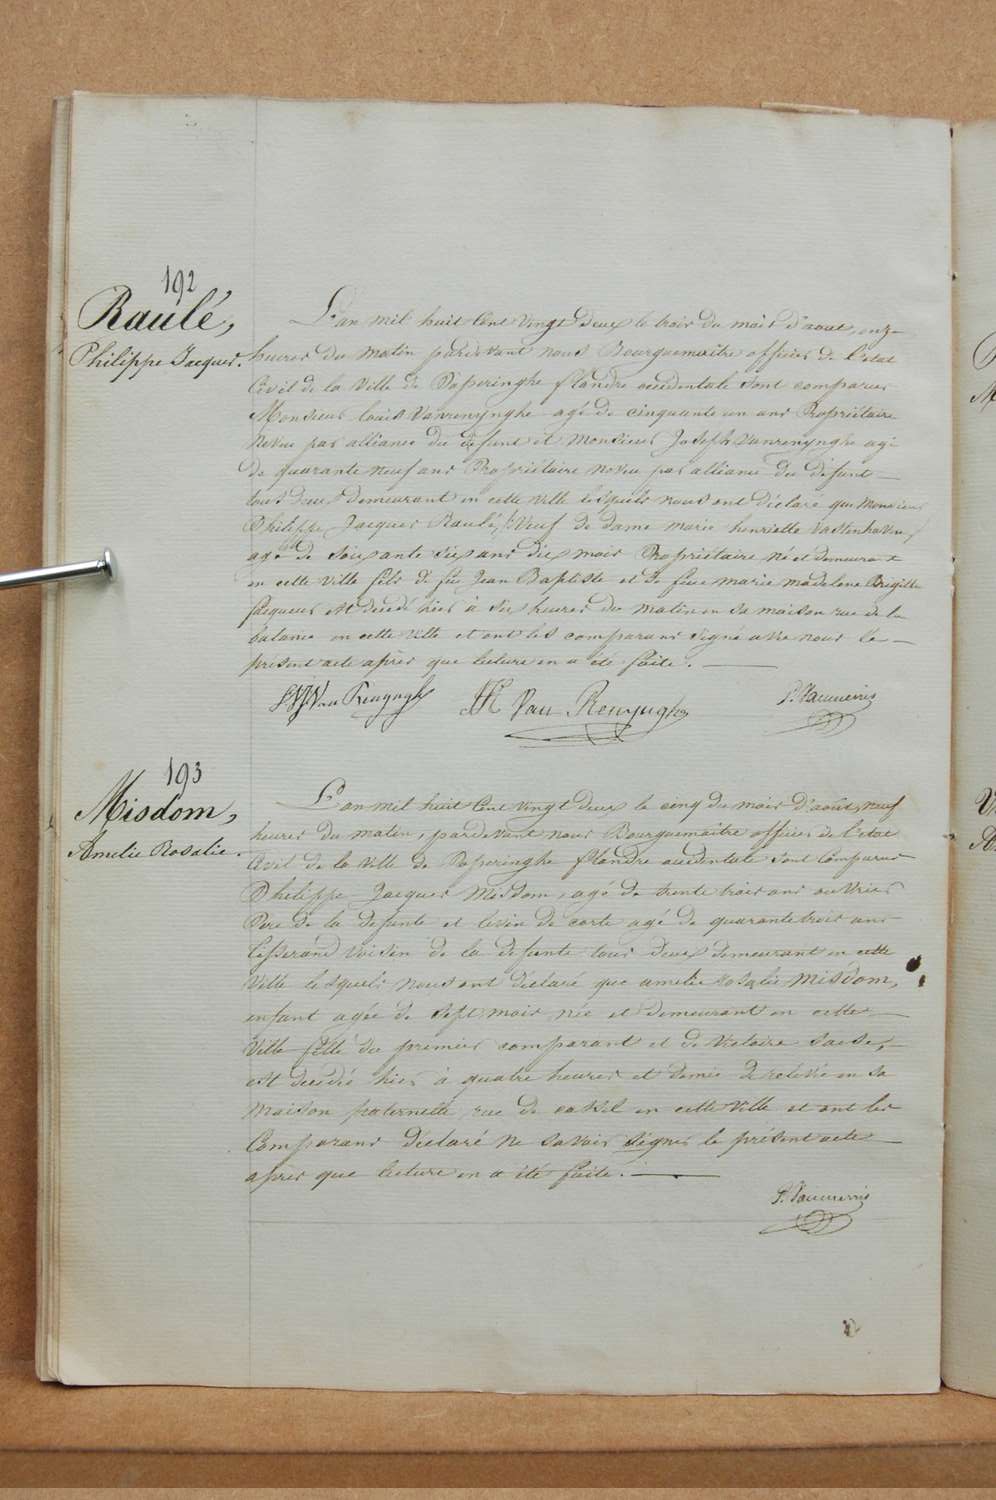 192
Raulé,
Philippe Jacques.
L'an mil huit Cent vingt deux le trois du mois d'aout, onze
heures du matin pardevant nous Bourguemaitre officier de l'etat
Civil de la Ville de Poperinghe flandre occidentale sont comparus
Monsieur Louis Vanrenynghe agé de cinquante un ans Propriétaire
Neveu par alliance du defunt et Monsieur Joseph Vanrenynghe agé
de quarante neuf ans Propriétaire neveu par alliance du défunt
tous deux demeurant en cette ville lesquels nous ont déclaré que Monsieur
Philippe Jacques Raulé, Veuf de dame marie henriette Vastenhaven,
agé de soixante dix ans dix mois Propriétaire né et demeurant
en cette ville fils de feu Jean Baptiste et de feue marie madelene Brigitte
Jacqueus est decedé hier à six heures du matin en sa maison rue de la
balance en cette ville et ont les comparans signé avec nous le
présent acte après que lecture en a été faite.
Van Renynghe
Van Renynghe
P. Vaumerris
193
Misdom,
Amelie Rosalie.
L'an mil huit Cent vingt deux le cinq du mois d'août, neuf
heures du matin, pardevant nous Bourguemaitre officier de l'etat
Civil de la Ville de Poperinghe flandre occidentale sont Comparus
Philippe Jacques Misdom, agé de trente trois ans ouvrier
Pere de la defunte et Levin de corte agé de quarante trois ans
tisserand voisin de la defunte tous deux demeurant en cette
Ville lesquels nous ont déclaré que amelie rosalie Misdom,
enfant agée de sept mois née et demeurant en cette
Ville fille du premier comparant et de Victoire
est decedé hier à quatre heures et demie de relevée en sa
maison paternelle rue de cassel en cette ville et ont les
Comparans déclaré ne savoir signer le présent acte
après que lecture en a été faite.
P. Vaumerris